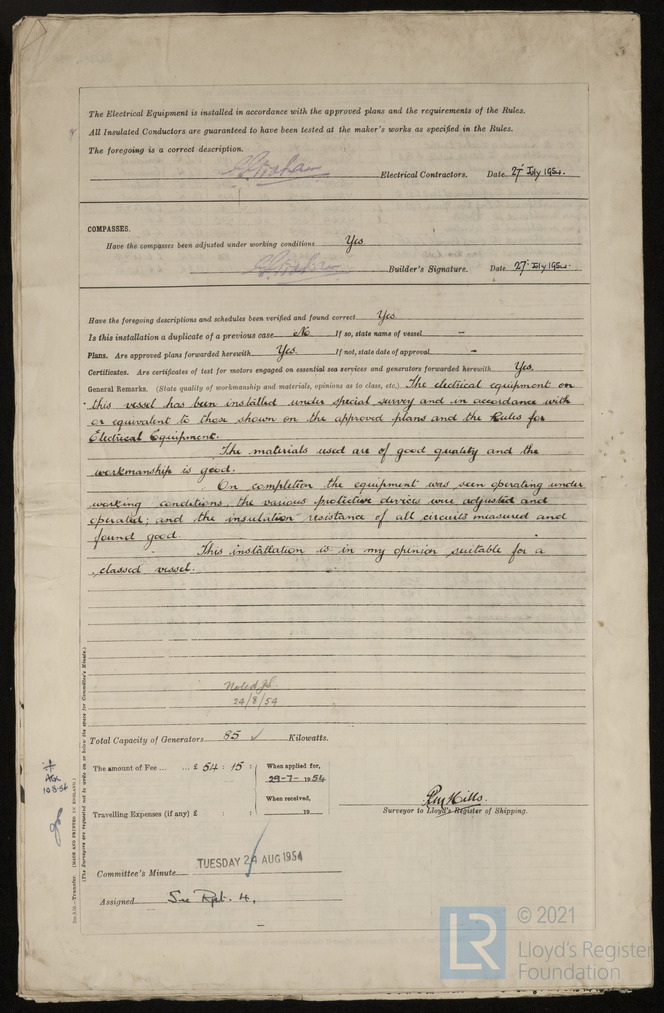 The Electrical Equipment is installed in accordance with the approved plans and the requirements of the Rules.
All Insulated Conductors are guaranteed to have been tested at the maker's works as specified in the Rules.
The foregoing is a correct description.
Electrical Contractors. Date 27 July 1954.
COMPASSES.
Have the compasses been adjusted under working conditions Yes
Builder's Signature. Date 27 July 1954.
Have the foregoing descriptions and schedules been verified and found correct Yes.
Is this installation a duplicate of a previous case No If so, state name of vessel –
Plans. Are approved plans forwarded herewith Yes. If not, state date of approval –
Certificates. Are certificates of test for motors engaged on essential sea services and generators forwarded herewith Yes.
General Remarks. (State quality of workmanship and materials, opinions as to class, etc.) The electrical equipment on
this vessel has been installed under special survey and in accordance with
or equivalent to those shown on the approved plans and the Rules for
Electrical Equipment.
The materials used are of good quality and the
workmanship is good.
On completion the equipment was seen operating under
working conditions, the various protective devices were adjusted and
operated; and the insulation resistance of all circuits measured and
found good.
This installation is in my opinion suitable for a
classed vessel.
Noted
24/8/54
Total Capacity of Generators 85 ✓ Kilowatts.
The amount of Fee ... ... £ 54 : 15 : When applied for, 29-7-1954
When received,
Travelling Expenses (if any) £ : : 19
Surveyor to Lloyd's Register of Shipping.
Committee's Minute TUESDAY 24 AUG 1954
Assigned See Rpt. 4.
(MADE AND PRINTED IN ENGLAND.)
(The Surveyors are requested not to write on or below the space for Committee's Minute.)
© 2021
LR
Lloyd's Register
Foundation